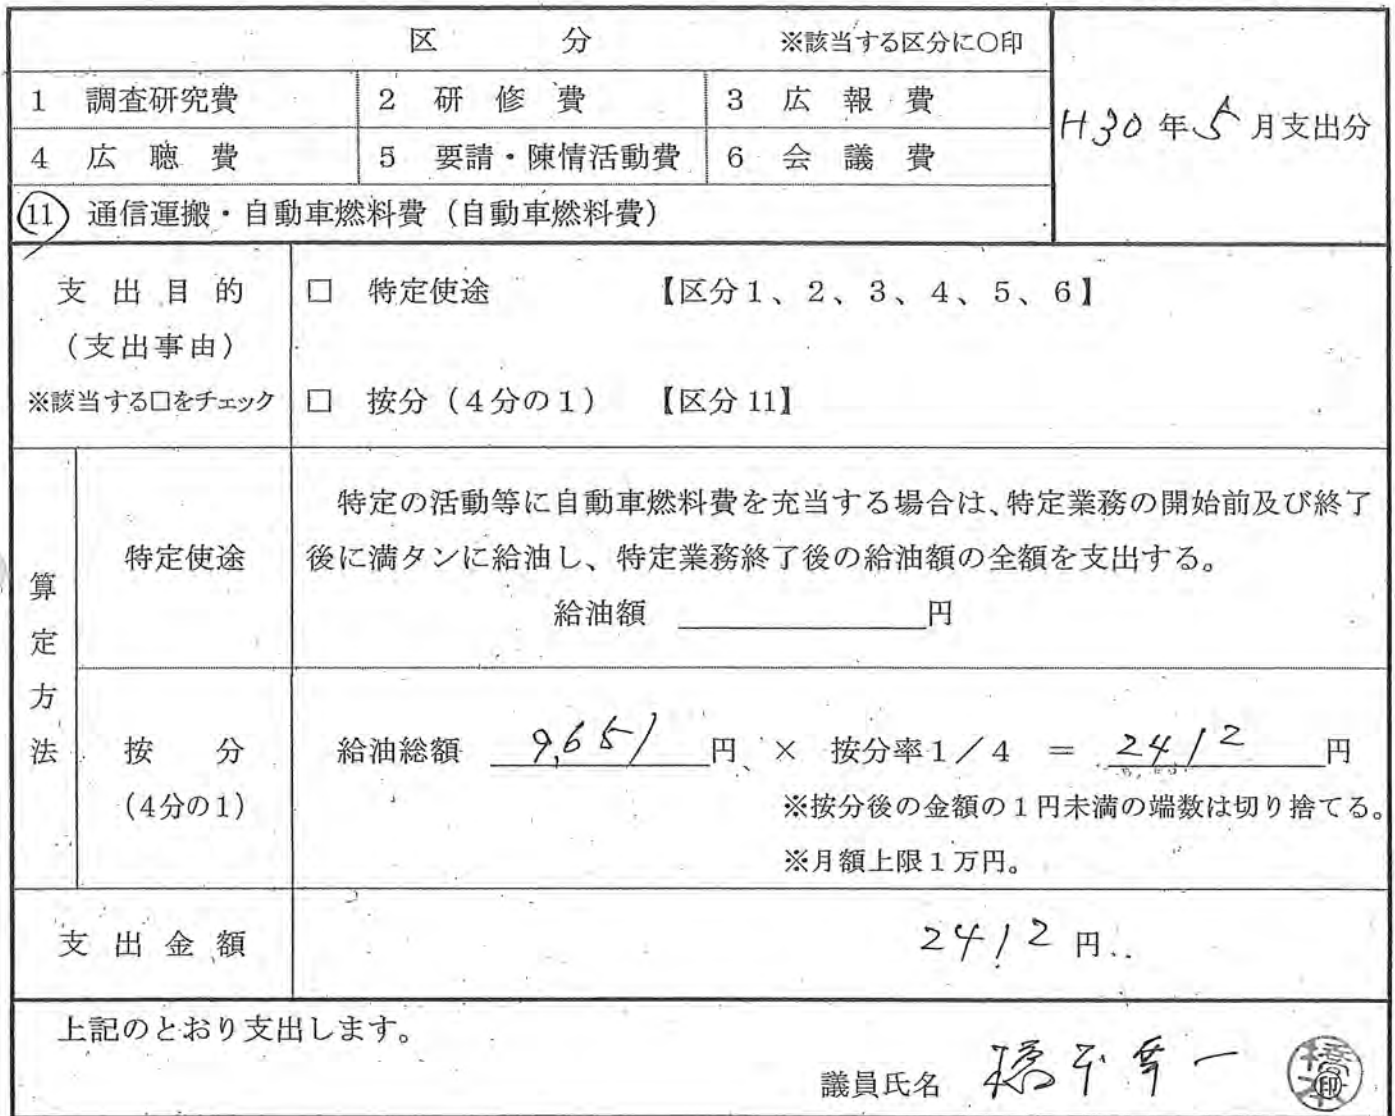 区 分 ※該当する区分に○印
1 調査研究費 2 研 修 費 3 広 報 費
H30年5月支出分
4 広 聴 費 5 要請・陳情活動費 6 会 議 費
11 通信運搬・自動車燃料費（自動車燃料費）
支 出 目 的
（支出事由）
※該当する□をチェック
□ 特定使途 【区分1、2、3、4、5、6】
□ 按分（4分の1） 【区分11】
算定方法
特定使途
特定の活動等に自動車燃料費を充当する場合は、特定業務の開始前及び終了
後に満タンに給油し、特定業務終了後の給油額の全額を支出する。
給油額 円
按 分
（4分の1）
給油総額 9,651 円 × 按分率1／4 ＝ 2412 円
※按分後の金額の1円未満の端数は切り捨てる。
※月額上限1万円。
支 出 金 額 2412 円
上記のとおり支出します。
議員氏名 橋本幸一 橋本 印